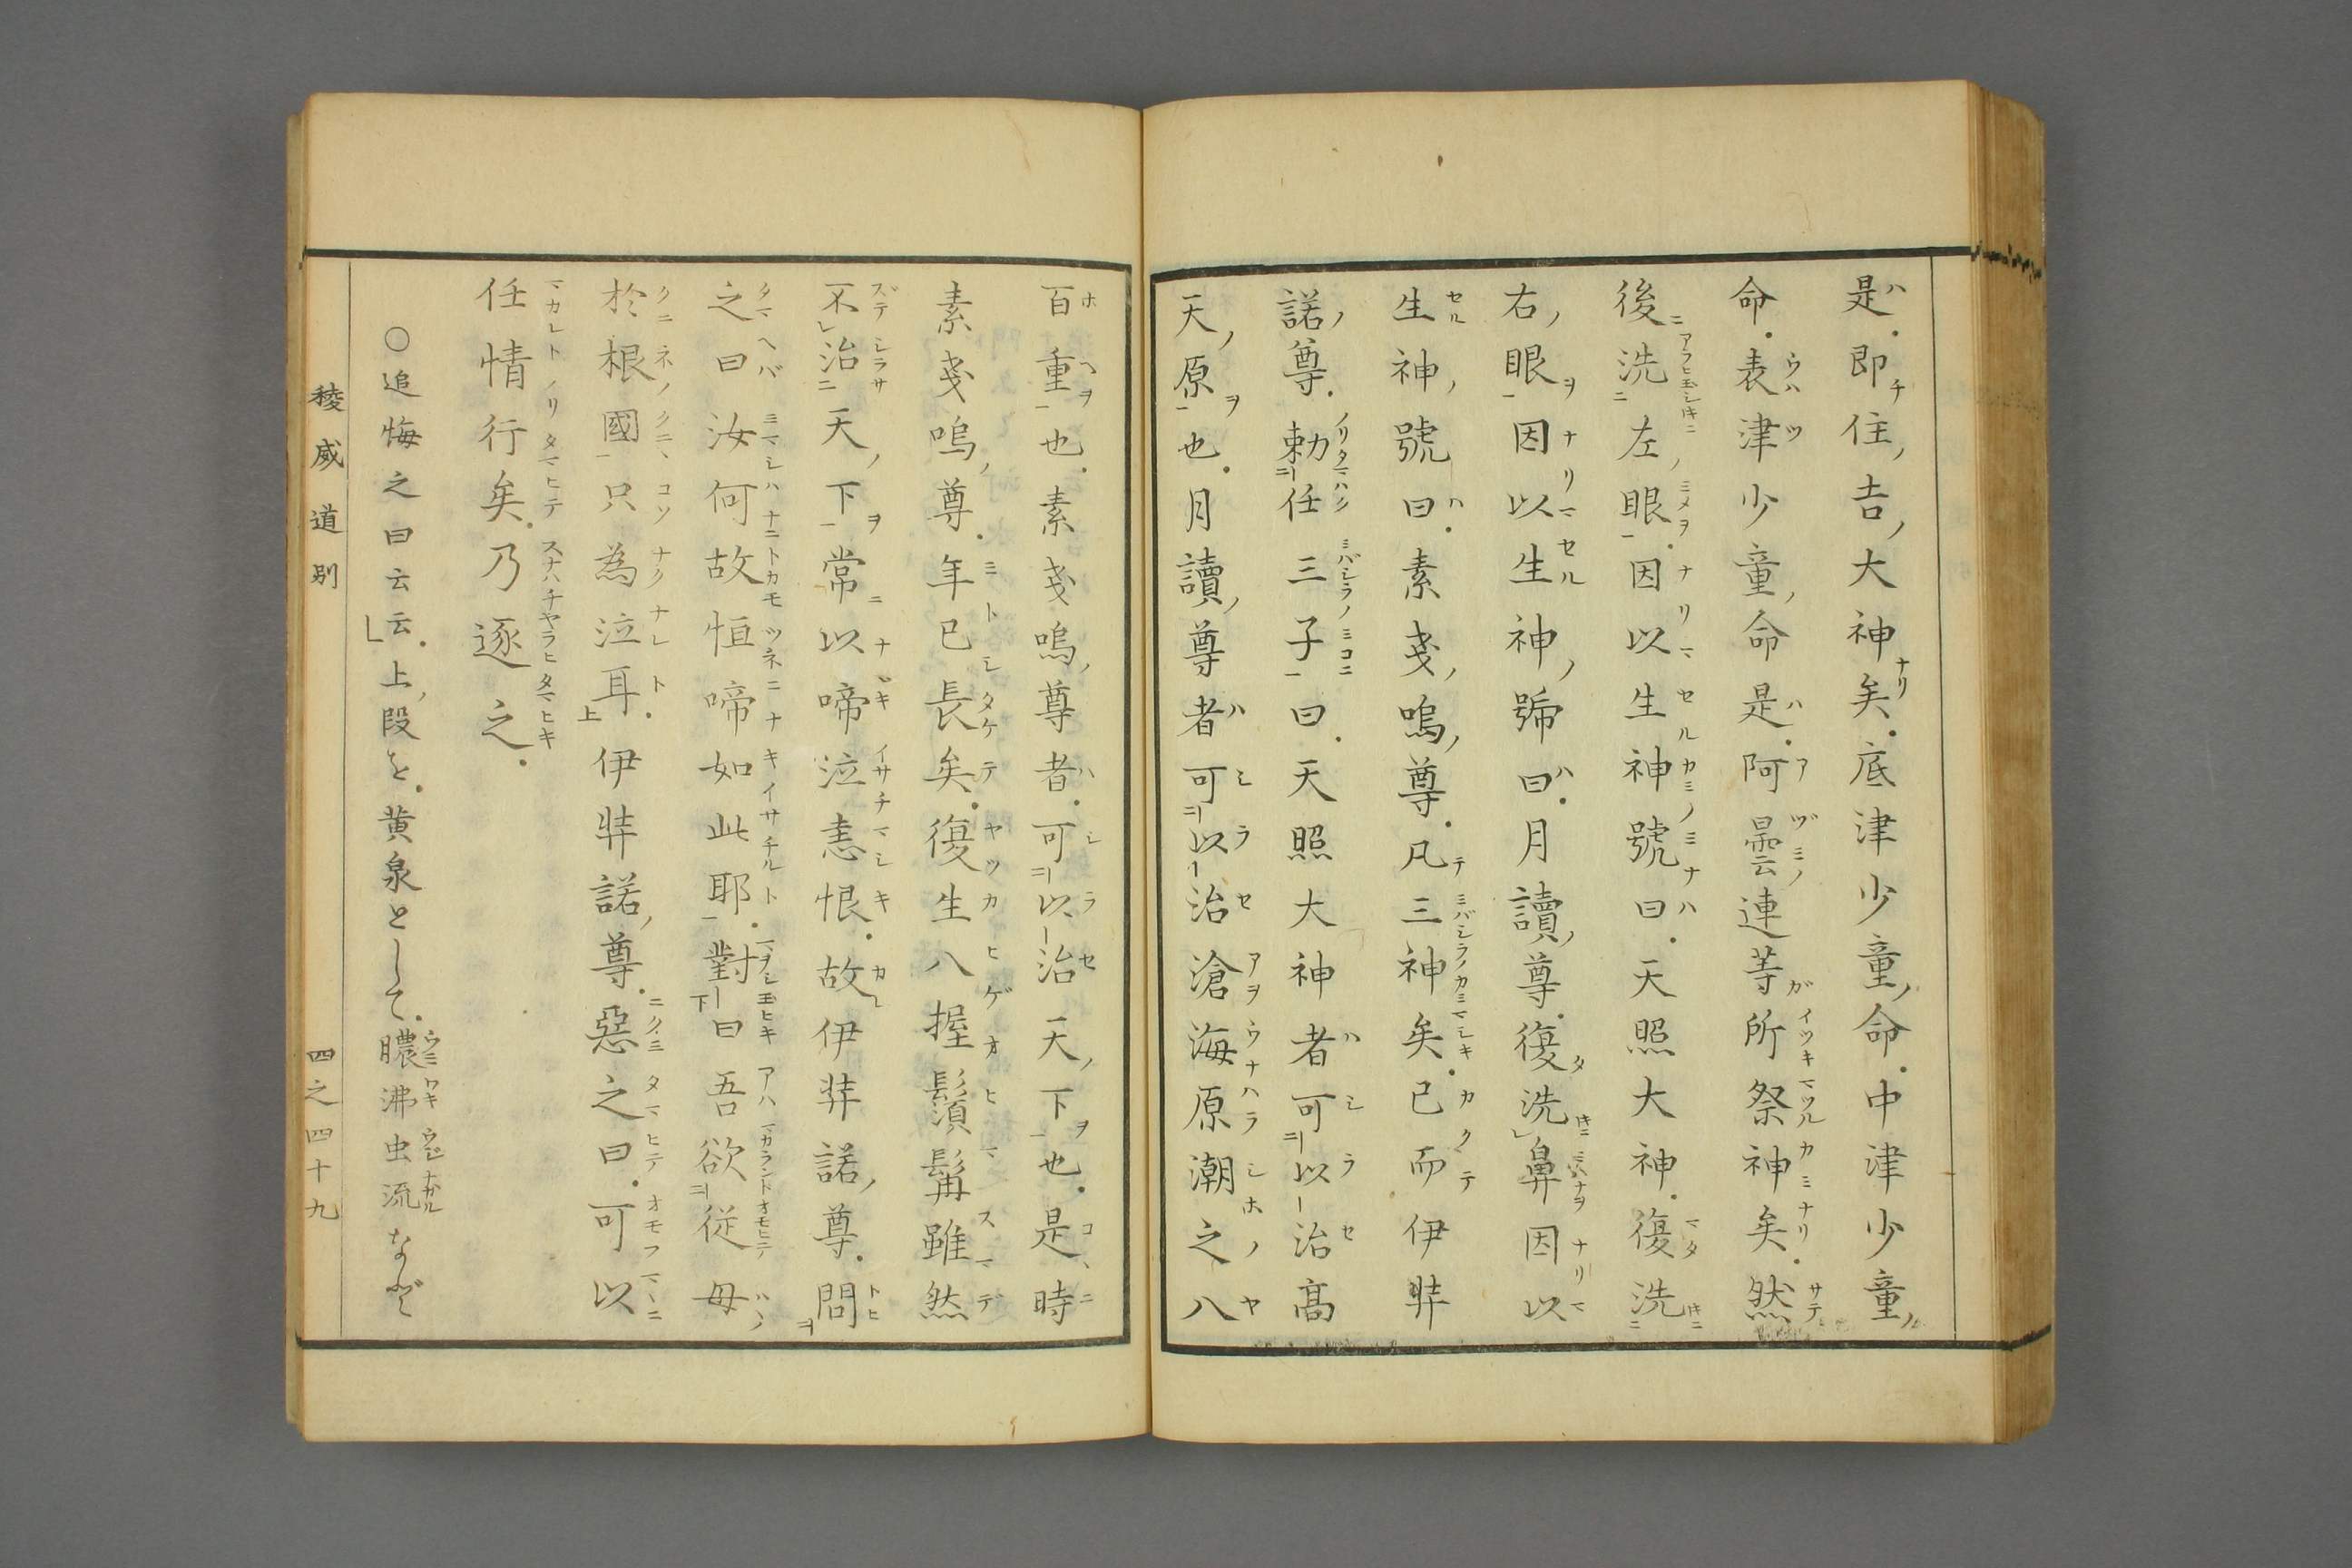 是即住吉大神矣底津少童命中津少童
命表津少童命是阿曇連等所祭神矣然
後洗左眼因以生神號曰天照大神復洗
右眼因以生神號曰月讀尊復洗鼻因以
生神號曰素戔嗚尊凡三神矣已而伊弉
諾尊勅任三子曰天照大神者可以治高
天原也月讀尊者可以治滄海原潮之八
百重也素戔嗚尊者可以治天下也是時
素戔嗚尊年已長矣復生八握鬚髯雖然
不治天下常以啼泣恚恨故伊弉諾尊問
之曰汝何故恒啼如此耶對曰吾欲從母
於根國只為泣耳伊弉諾尊惡之曰可以
任情行矣乃逐之
○追悔之曰云云上段を黄泉として膿沸虫流など
稜威道別　四之四十九